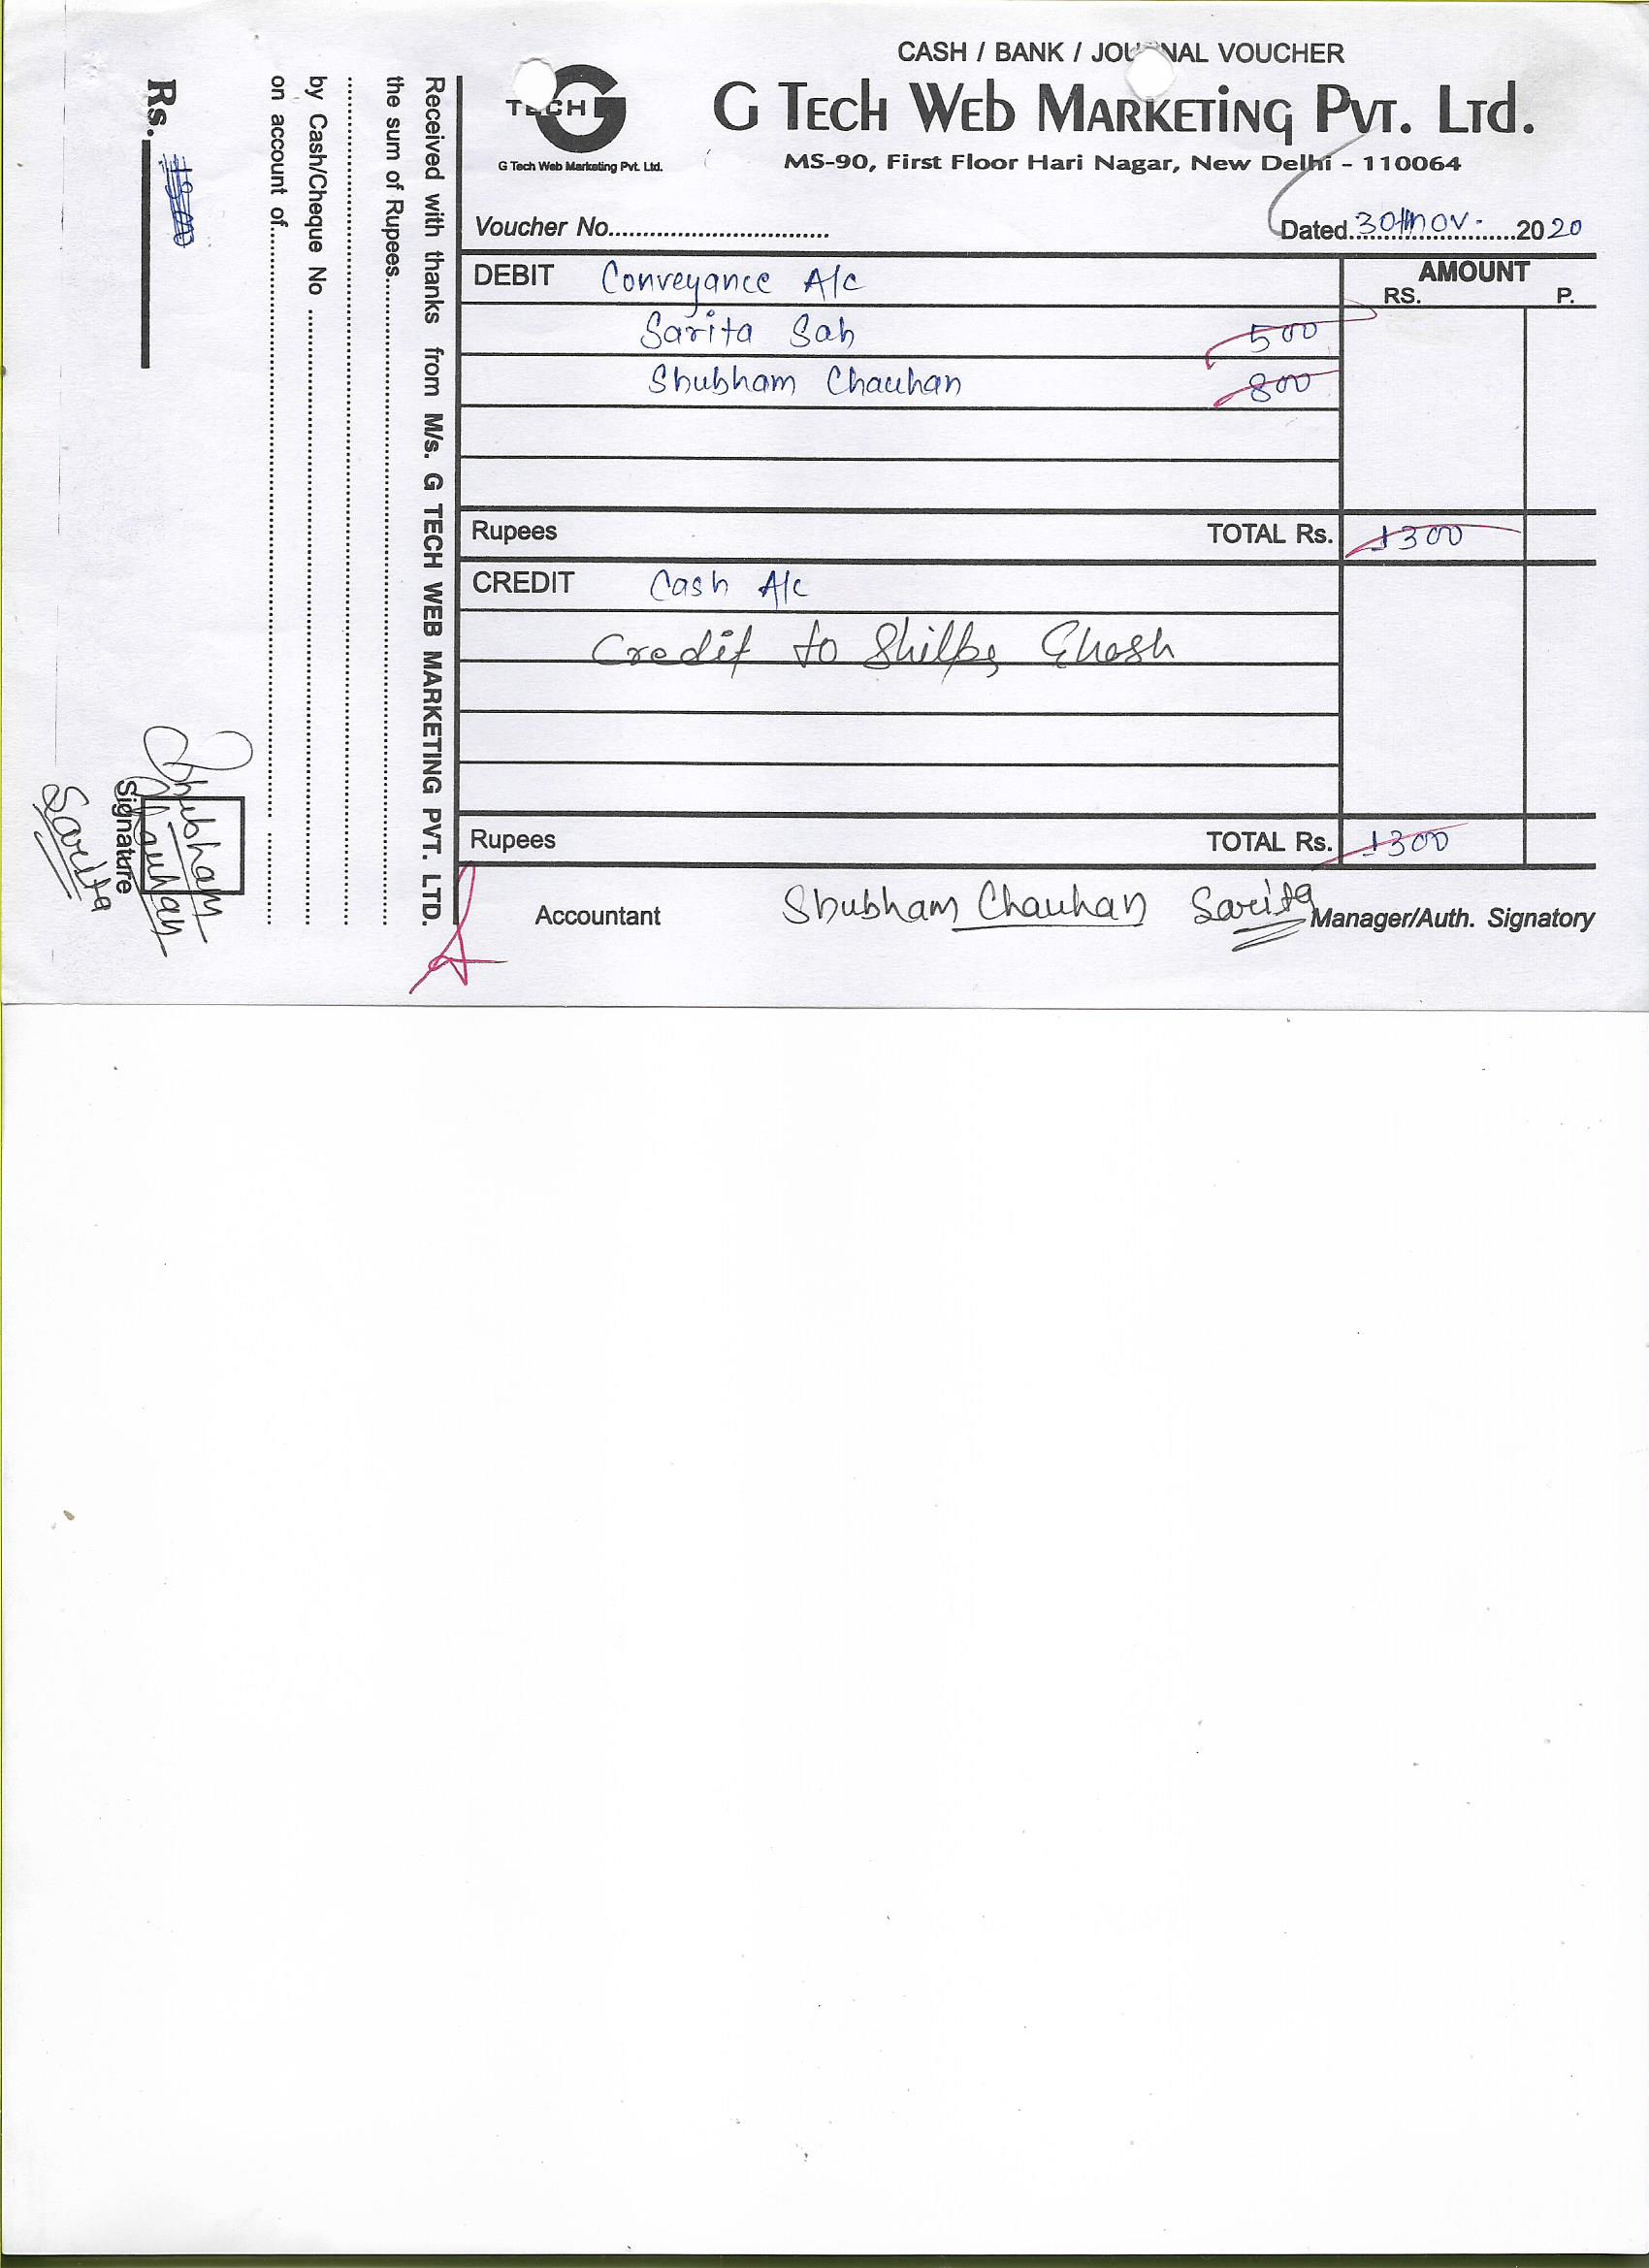 CASH / BANK / JOURNAL VOUCHER
TECH G
G Tech Web Marketing Pvt. Ltd.
G Tech Web Marketing Pvt. Ltd.
MS-90, First Floor Hari Nagar, New Delhi - 110064
Voucher No............................... Dated.30th nov.........2020
DEBIT Conveyance A/c AMOUNT
RS. P.
Sarita Sah 500
Shubham Chauhan 800
Rupees TOTAL Rs. 1300
CREDIT Cash A/c
Credit to Shilpa Ghosh
Rupees TOTAL Rs. 1300
Accountant Shubham Chauhan Sarita Manager/Auth. Signatory
Received with thanks from M/s. G TECH WEB MARKETING PVT. LTD.
the sum of Rupees
by Cash/Cheque No
on account of
Rs.
Shubham
Chauhan
Signature
Sarita